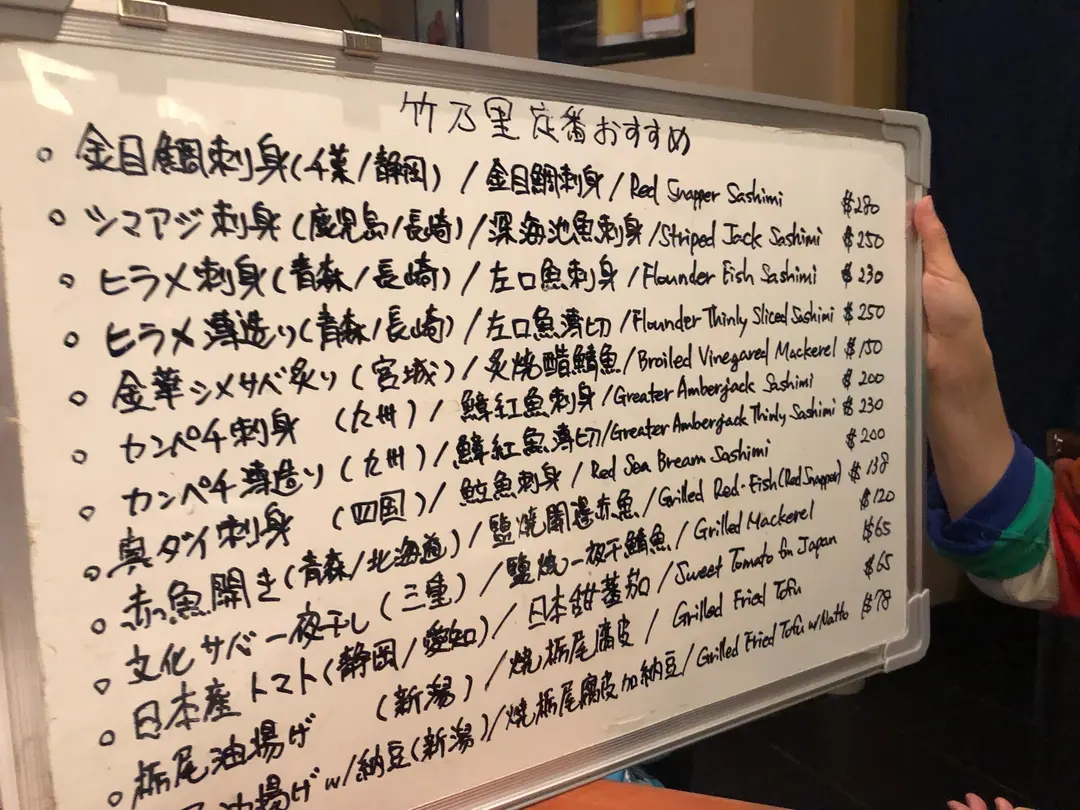 竹乃里定番おすすめ
金目鯛刺身(千葉/静岡) / 金目鯛刺身 / Red Snapper Sashimi $280
シマアジ刺身(鹿児島/長崎) / 深海池魚刺身 / Striped Jack Sashimi $250
ヒラメ刺身(青森/長崎) / 左口魚刺身 / Flounder Fish Sashimi $230
ヒラメ薄造り(青森/長崎) / 左口魚薄切 / Flounder Thinly Sliced Sashimi $250
金華シメサバ炙り(宮城) / 炙焼醋鯖魚 / Broiled Vinegared Mackerel $150
カンパチ刺身 (九州) / 鰤紅魚刺身 / Greater Amberjack Sashimi $200
カンパチ薄造り(九州) / 紅魚薄切 / Greater Amberjack Thinly Sashimi $230
真ダイ刺身 (四国) / 魚刺身 / Red Sea Bream Sashimi $200
赤魚開き(青森/北海道) / 鹽焼開邊赤魚 / Grilled Red-Fish(Red Snapper) $138
文化サバ一夜干し(三重) / 鹽焼一夜干鯖魚 / Grilled Mackerel $120
日本産トマト(静岡/愛知) / 日本甜蕃茄 / Sweet Tomato fm Japan $65
栃尾油揚げ (新潟) / 焼栃尾腐皮 / Grilled Fried Tofu $65
油揚げw/納豆(新潟) / 焼栃尾腐皮加納豆 / Grilled Fried Tofu w/Natto $78